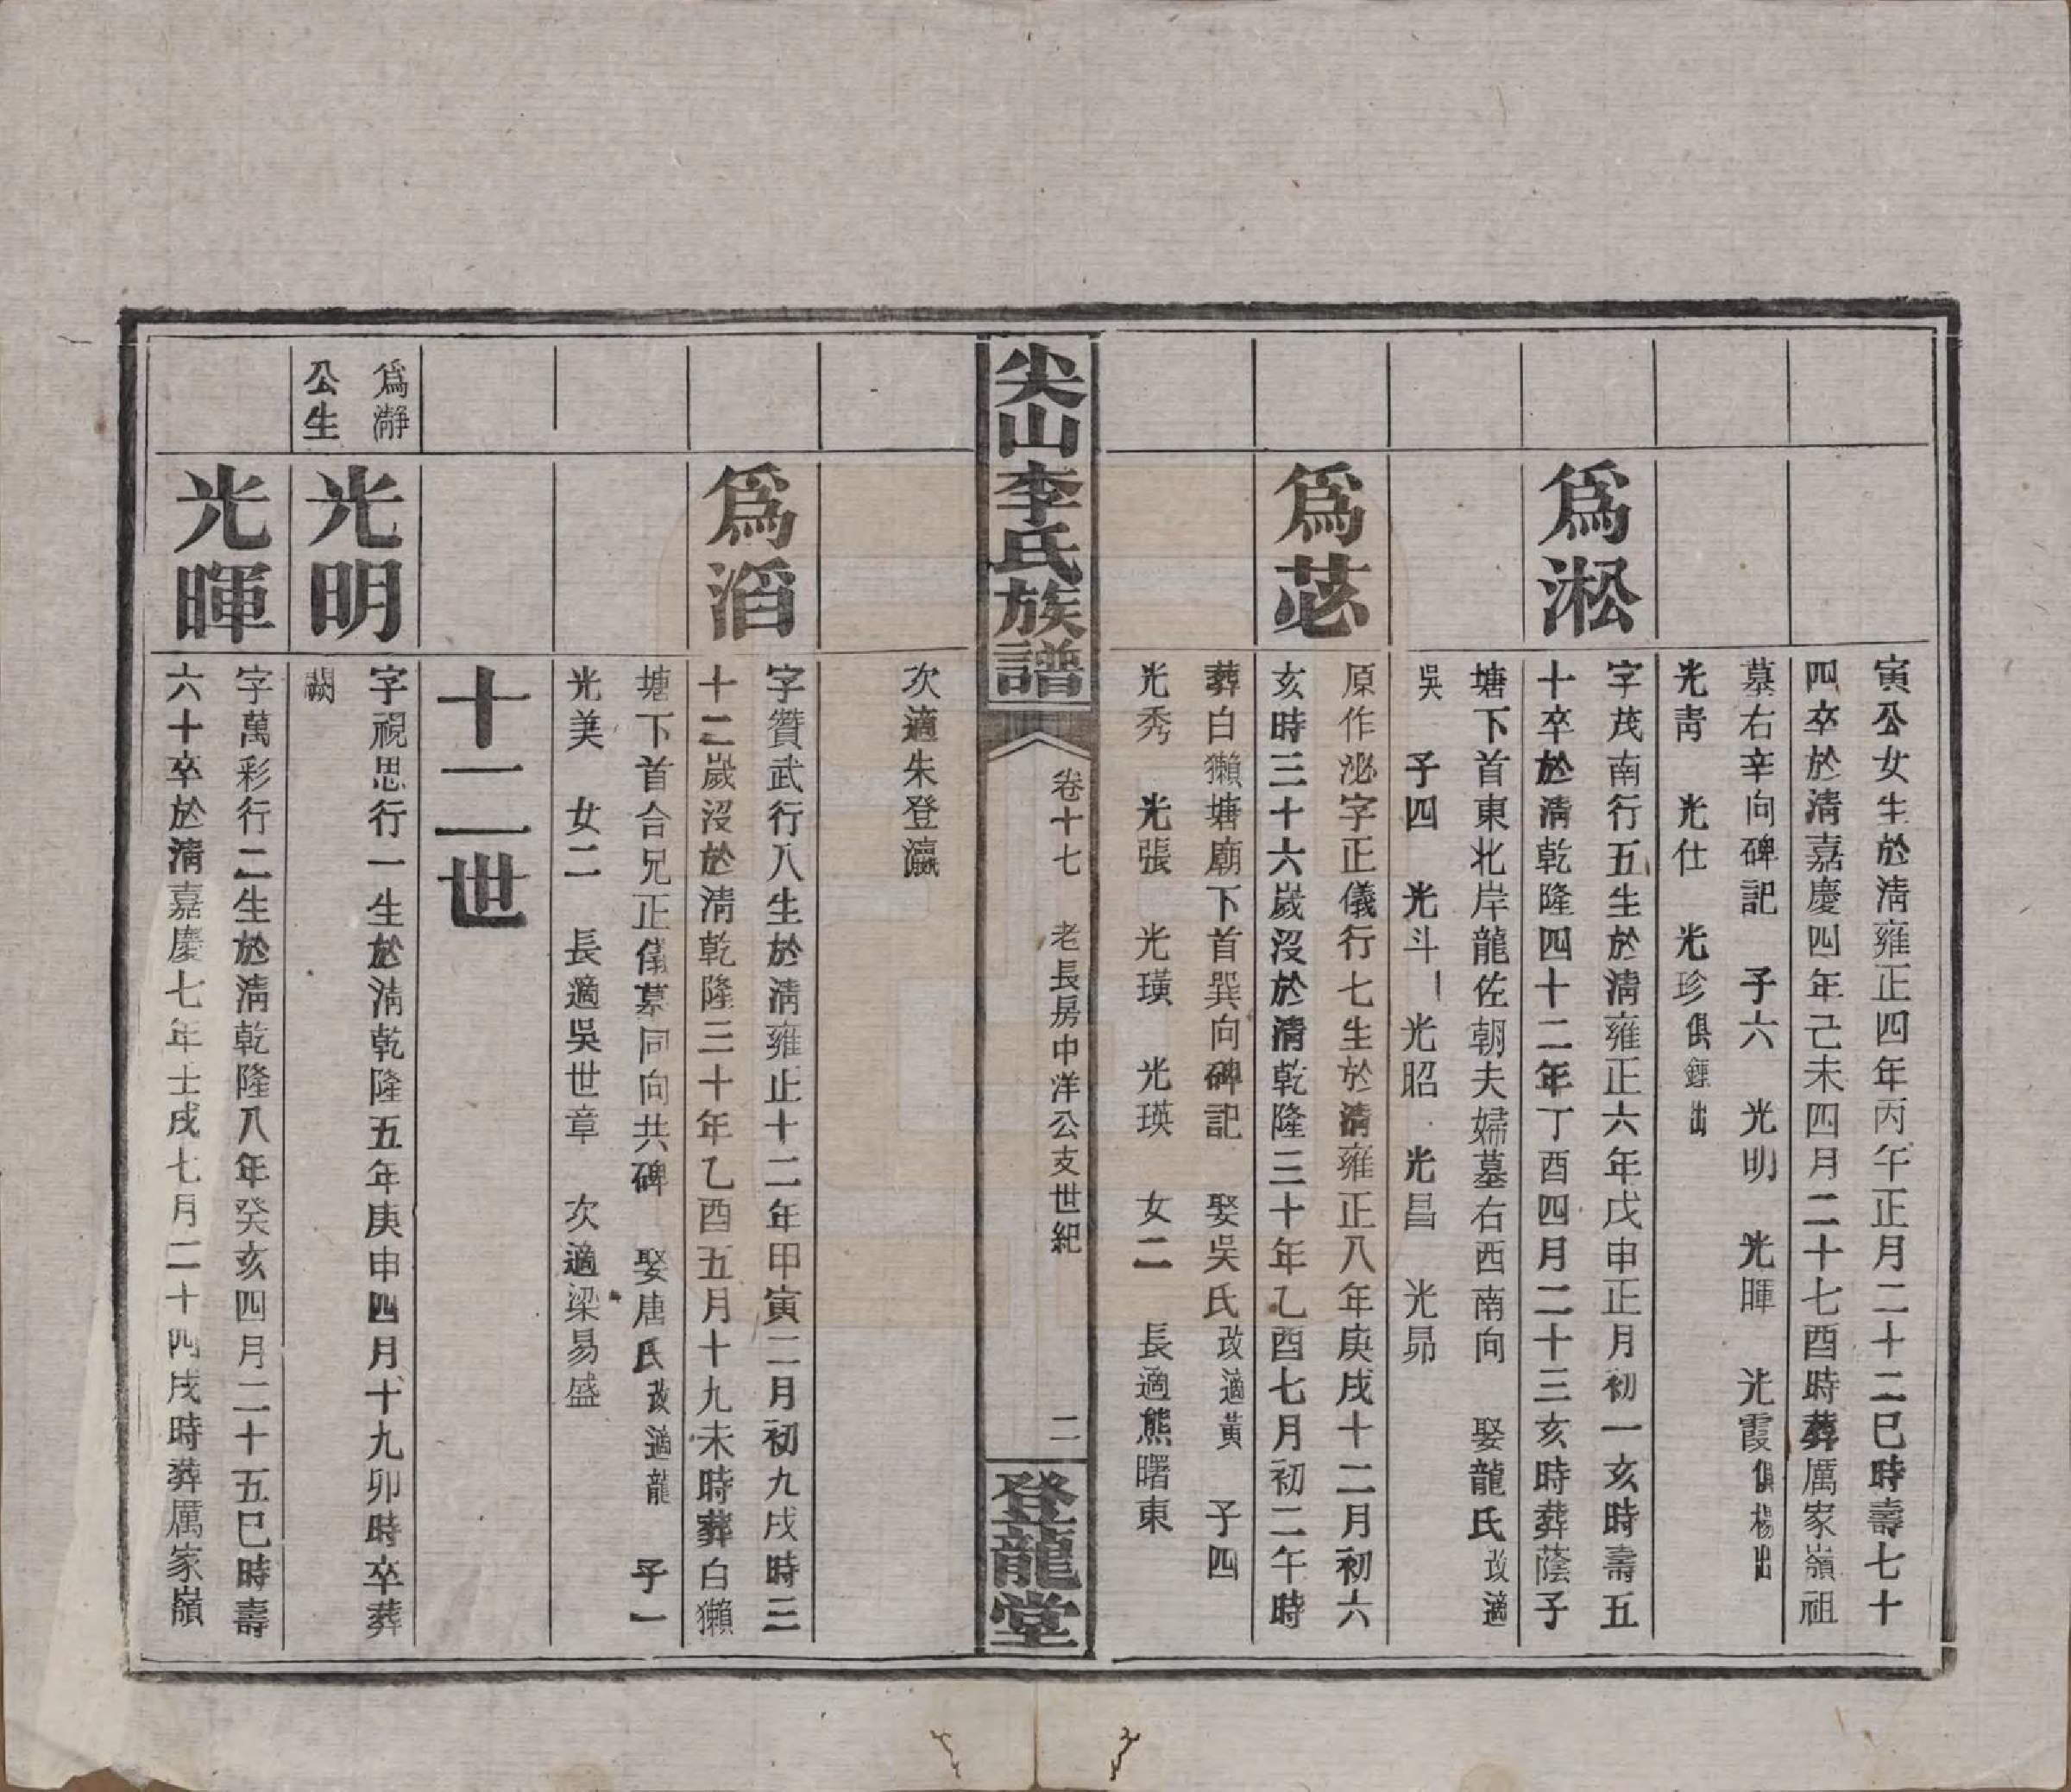 寅公女生於淸雍正四年丙午正月二十二巳時壽七十
四卒於淸嘉慶四年己未四月二十七酉時葬厲家嶺祖
墓右辛向碑記　子六　光明　光暉　光霞俱楊出
光靑　光仕　光珍俱鍾出
爲淞
字茂南行五生於淸雍正六年戊申正月初一亥時壽五
十卒於淸乾隆四十二年丁酉四月二十三亥時葬蔭子
塘下首東北岸龍佐朝夫婦墓右西南向　娶龍氏改適
吳　子四　光斗　光昭　光昌　光昴
爲苾
原作泌字正儀行七生於淸雍正八年庚戌十二月初六
亥時三十六歲沒於淸乾隆三十年乙酉七月初二午時
葬白獺塘廟下首巽向碑記　娶吳氏改適黃　子四
光秀　光張　光璜　光瑛　女二　長適熊曙東
尖山李氏族譜
卷十七　老長房中洋公支世紀
二
登龍堂
次適朱登瀛
爲滔
字贊武行八生於淸雍正十二年甲寅二月初九戌時三
十二歲沒於淸乾隆三十年乙酉五月十九未時葬白獺
塘下首合兄正儀墓同向共碑　娶唐氏改適龍　子一
光美　女二　長適吳世章　次適梁易盛
十二世
爲瀞
公生
光明
字視思行一生於淸乾隆五年庚申四月十九卯時卒葬
闕
光暉
字萬彩行二生於淸乾隆八年癸亥四月二十五巳時壽
六十卒於淸嘉慶七年壬戌七月二十四戌時葬厲家嶺